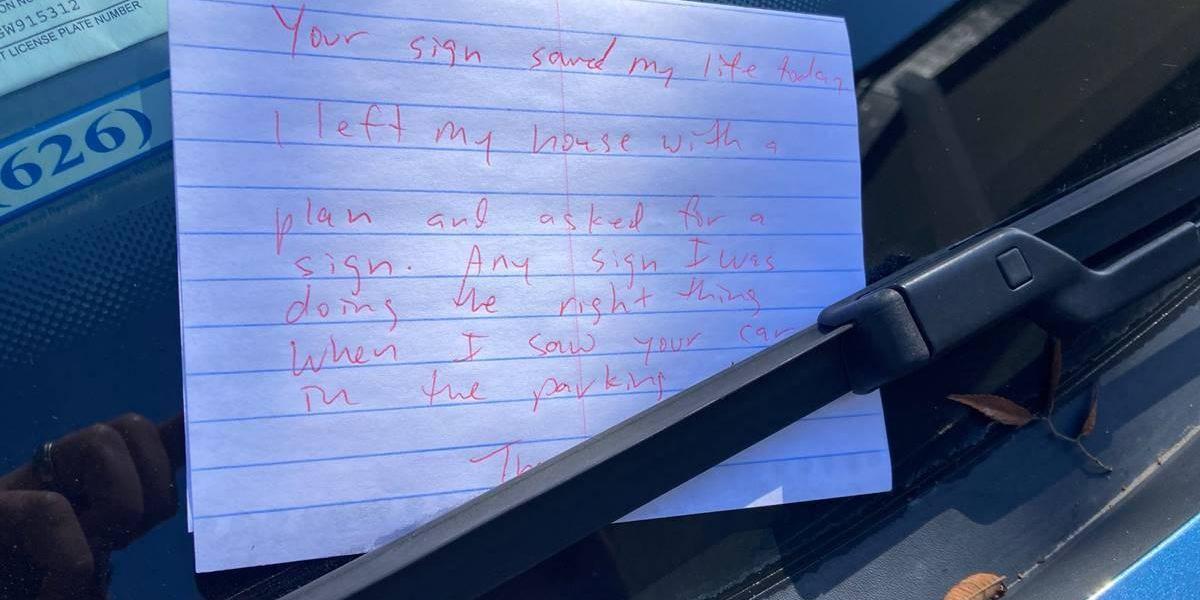 SW915312
T LICENSE PLATE NUMBER
(626)
Your sign saved my life today
I left my house with a
plan and asked for a
sign. Any sign I was
doing the right thing
When I saw your car
in the parking